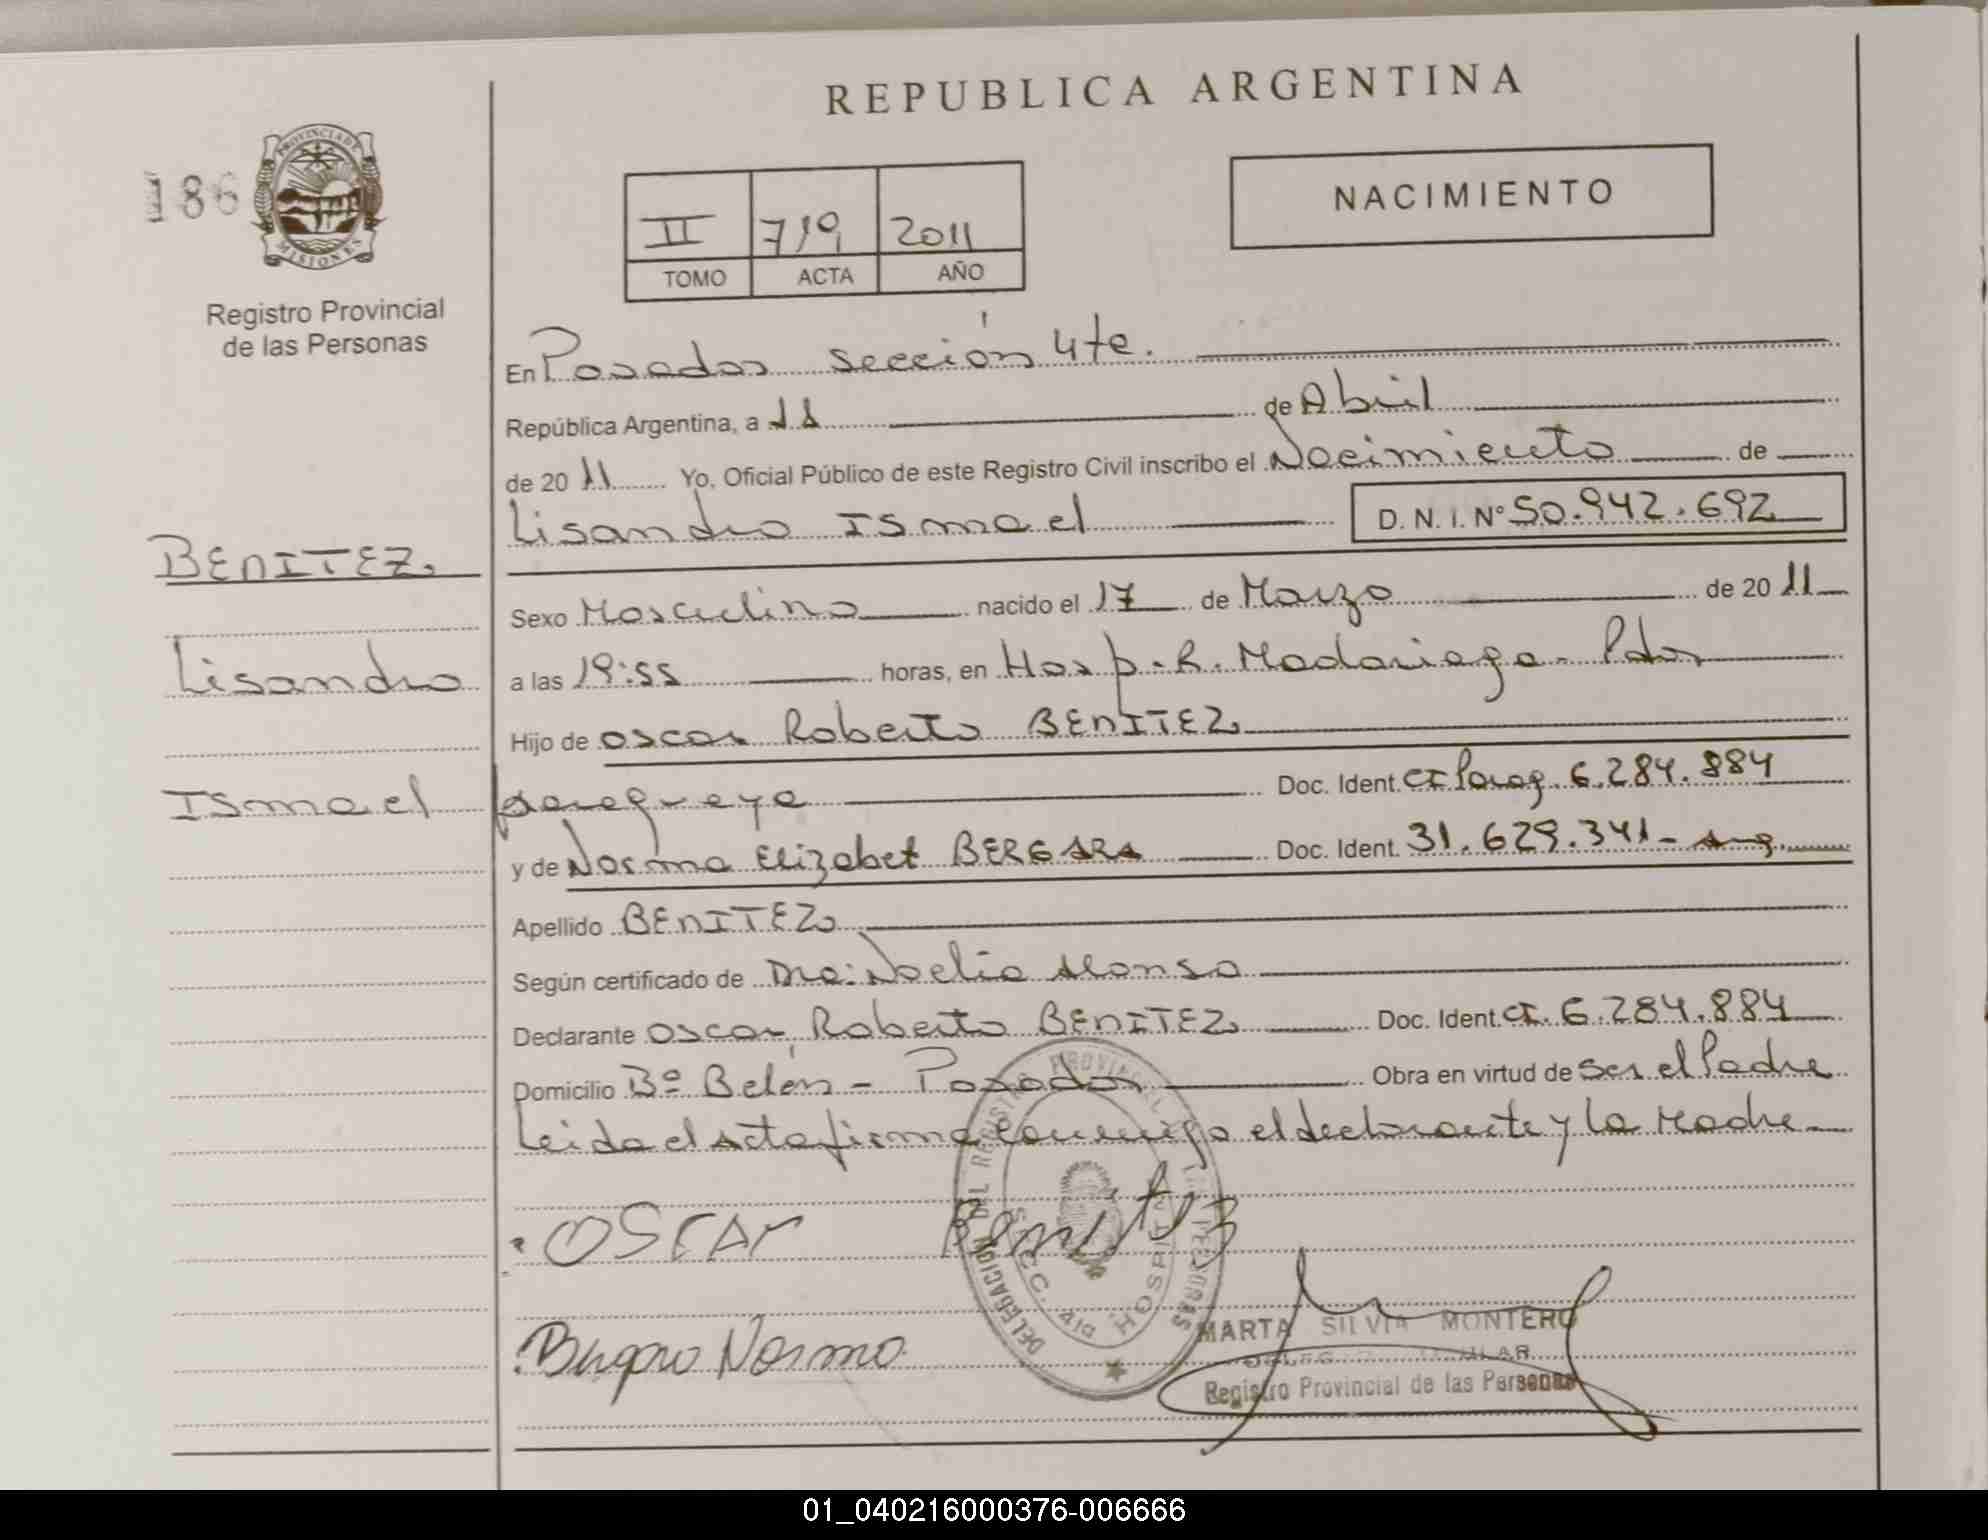 REPUBLICA ARGENTINA
186
PROVINCIA DE
MISIONES
Registro Provincial
de las Personas
II 719 2011
TOMO ACTA AÑO
NACIMIENTO
En Posadas sección 4te.
República Argentina, a 11 de Abril
de 2011 Yo, Oficial Público de este Registro Civil inscribo el Nacimiento de
Lisandro Ismael D. N. I. Nº 50.942.692
BENITEZ
Lisandro
Ismael
Sexo Masculino nacido el 17 de Marzo de 2011
a las 19:55 horas, en Hosp. R. Madariaga - Pdas
Hijo de Oscar Roberto BENITEZ
paraguaya Doc. Ident. CI Parag. 6.284.884
y de Norma Elizabet BERGARA Doc. Ident. 31.629.341 - Arg.
Apellido BENITEZ
Según certificado de Dra: Noelia Alonso
Declarante Oscar Roberto BENITEZ Doc. Ident. CI. 6.284.884
Domicilio Bº Belén - Posadas Obra en virtud de ser el Padre
Leida el Acta firma conmigo el declarante y la Madre
OSCAR Benitez
Norma
DELEGACION DEL REGISTRO PROVINCIAL
SECC. 4ta HOSPITAL
MARTA SILVIA MONTERO
Registro Provincial de las Personas
01_040216000376-006666